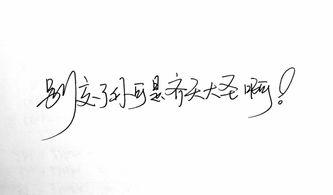 别忘了你可是齐天大圣啊！